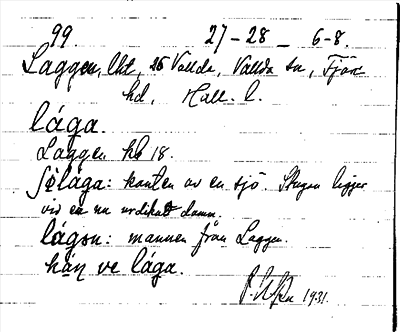 99. 27-28 - 6-8.
Laggen, lht, 26 Vallda, Vallda sn, Fjäre
hd, Hall. l.
låga.
Laggen hb 18.
sélåga: kanten av en sjö. Stugan ligger
vid en nu utdikad damm.
lågan: mannen från Laggen.
han ve låga.
1931.